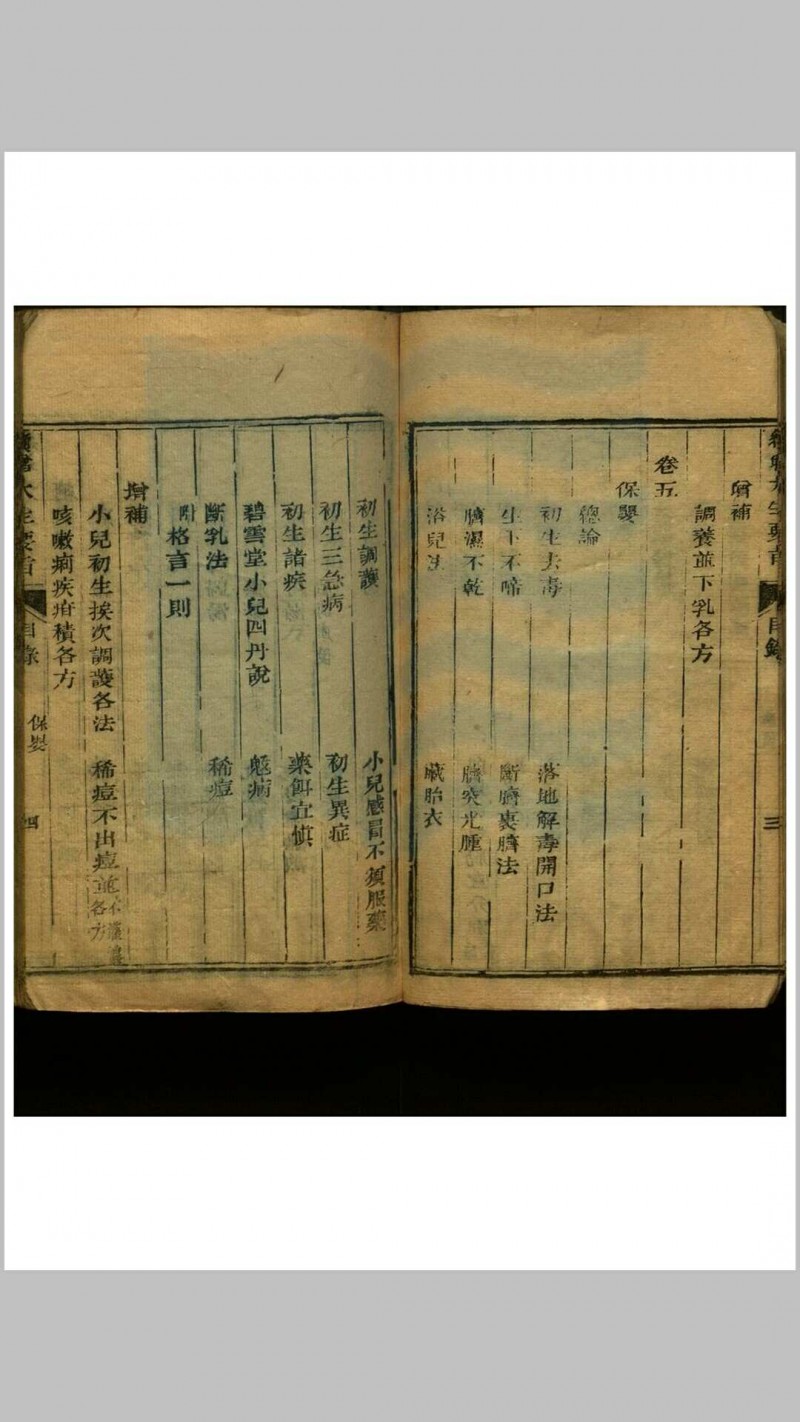 增補
調養並下乳各方
卷五
保嬰
總論
初生去毒　落地解毒開口法
生下不啼　斷臍裹臍法
臍濕不乾　臍突光腫
浴兒法　藏胎衣
大生要旨　目錄　三
初生調護　小兒感冒不須服藥
初生三急病　初生異症
初生諸疾　藥餌宜慎
碧雲堂小兒四丹說　魃病
斷乳法　稀痘
附格言一則
增補
小兒初生挨次調護各法　稀痘不出痘並各方
咳嗽痢疾疳積各方
大生要旨　目錄　保嬰　四